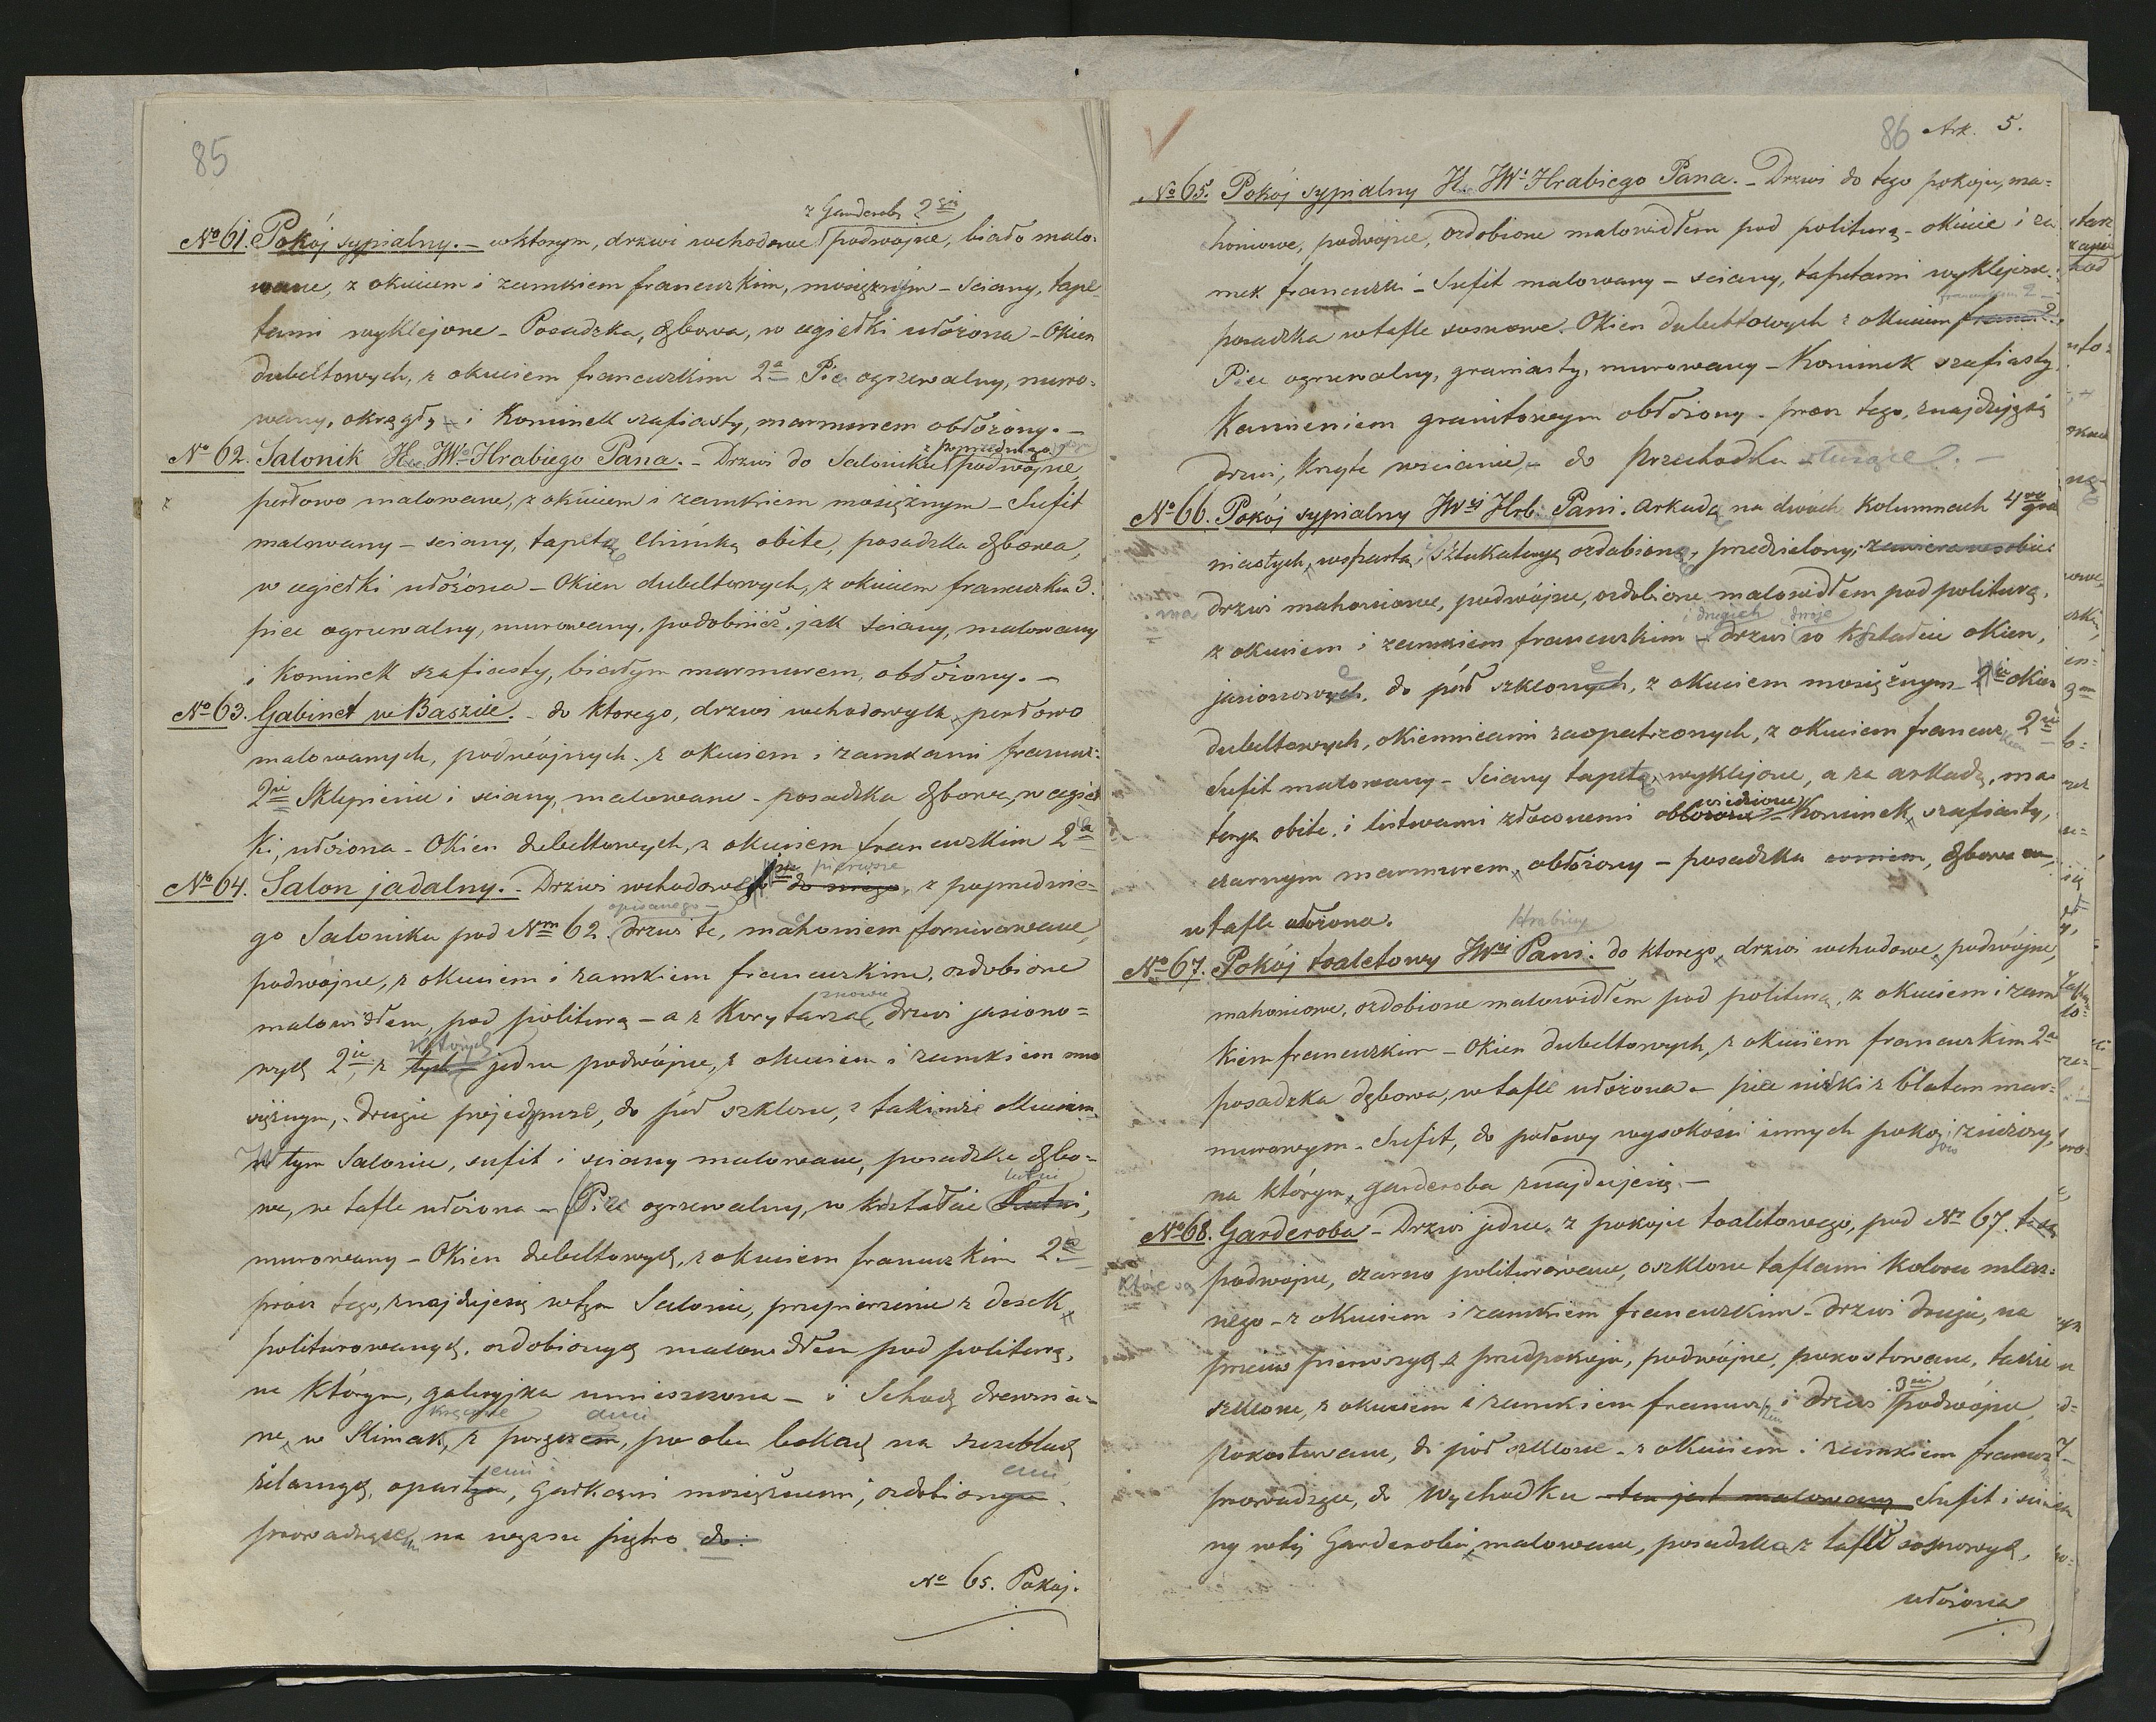 85
z Garderoby 2gie
No 61. Pokój sypialny. – w ktorym, drzwi wchodowe podwojne, biało malo=
wane, z okuciem i zamkiem francuzkim, mosiężnym – sciany, tape=
tami wyklejone – Posadzka, dębowa, w cegiełki ułożona – Okien
dubeltowych, z okuciem francuzkim 2a Piec ogrzewalny, muro=
wany, okrągły – i Kominek szafiasty, marmurem obłożony. –
z Pomienionego
No 62. Salonik JW. Hrabiego Pana. – Drzwi do Saloniku podwójne,
perłowo malowane, z okuciem i zamkiem mosiężnym – Sufit
malowany – sciany, tapetą Chińską obite, posadzka dębowa,
w cegiełki ułożona – Okien dubeltowych, z okuciem francuzkim 3.
piec ogrzewalny, murowany, podobnież jak sciany, malowany
i Kominek szafiasty, białym marmurem, obłożony. –
No 63. Gabinet w Baszcie. – do ktorego, drzwi wchodowych, perłowo
malowanych, podwójnych, z okuciem i zamkami francuz:
2ie Sklepienie i sciany, malowane – posadzka dębowa, w cegieł
ki, ułożona – Okien dubeltowych, z okuciem francuzkim 2a
pierwsze
No 64. Salon jadalny. – Drzwi wchodowe do niego, z poprzednie=
opisanego –
go Saloniku pod Nm 62. Drzwi te, mahoniem fornirowane,
podwójne, z okuciem i zamkiem francuzkim, ozdobione
znowu
malowidłem, pod politurą – a z Korytarza, drzwi jasiono=
których
wych 2ie, z tych jedne podwójne, z okuciem i zamkiem mo
siężnym, drugie pojedyncze, do pół szklone, z takimże okuciem
W tym Salonie, sufit i sciany malowane, posadzka dębo=
lutni
wa, w tafle ułożona – Piec ogrzewalny, w kształcie Lutni,
murowany – Okien dubeltowych, z okuciem francuzkim 2a
prócz tego, znajduje się w tym Salonie, przepierzenie z desek
politurowanych, ozdobionych malowidłem pod politurą,
na którym, galeryjka umieszczona – i Schody drewnia=
kręcone ami
ne, w Slimak, z poręczem, po obu bokach na szczeblach
emi emi
żelaznych, opartym, gałkami mosiężnemi, ozdobionym,
prowadzącem na wyższe piętro do:
No 65. Pokoj.
86 Ark. 5.
No 65. Pokój sypialny JW. Hrabiego Pana. – Drzwi do tego pokoju, ma=
honiowe, podwójne, ozdobione malowidłem pod politurą – okucie i za
mek francuzki – Sufit malowany – sciany, tapetami wyklejone.
francuzkiem 2
posadzka w tafle sosnowe. Okien dubeltowych z okuciem
Piec ogrzewalny, graniasty, murowany – Kominek szafiasty
Kamieniem granitowym obłożony – prócz tego, znajdują się
drzwi, kryte w scianie, – do Przechodka służące. –
No 66. Pokój sypialny JWej Hrb. Pani. Arkadą na dwóch Kolumnach 4ro gra
niastych, wspartą, i sztukateryą ozdobioną, przedzielony, zawiera w sobie:
ma
drzwi mahoniowe, podwójne, ozdobione malowidłem pod politurą,
i drugich dwoje
z okuciem i zamkiem francuzkim – drzwi w kształcie okien,
e e
jasionowych, do pół szklonych, z okuciem mosiężnym – 2ie okien
dubeltowych, okiennicami zaopatrzonych, z okuciem francuz 2ie
Sufit malowany – Sciany tapetą, wyklejone, a za arkadą, ma
teryą obite, i listwami złoconemi Kominek, szafiasty,
czarnym marmurem, obłożony – posadzka dębowa
w tafle ułożona.
Hrabiny
No 67. Pokój toaletowy JWej Pani. do ktorego, drzwi wchodowe, podwójne,
mahoniowe, ozdobione malowidłem pod politurą, z okuciem i zam
kiem francuzkim – Okien dubeltowych, z okuciem francuzkim 2a
posadzka dębowa, w tafle ułożona – piec niski z blatem mar=
murowym – Sufit, do połowy wysokości innych pokoj zniżony,
jów
na którym, garderoba znajduje się –
No 68. Garderoba – Drzwi jedne, z pokoju toaletowego, pod Nr 67.
które są
podwojne, czarno politurowane, oszklone taflami koloru mlecz=
nego – z okuciem i zamkiem francuzkim – drzwi drugie, na
przeciw pierwszych z przedpokoju, podwójne, pokostowane, także
3cie
szklone, z okuciem i zamkiem francuz i drzwi podwójne,
pokostowane, do pół szklone – z okuciem i zamkiem francuz
prowadzące, do Wychodku ten jest malowany Sufit i scia
ny w tej Garderobie, malowane, posadzka z tafli sosnowych,
ułożona